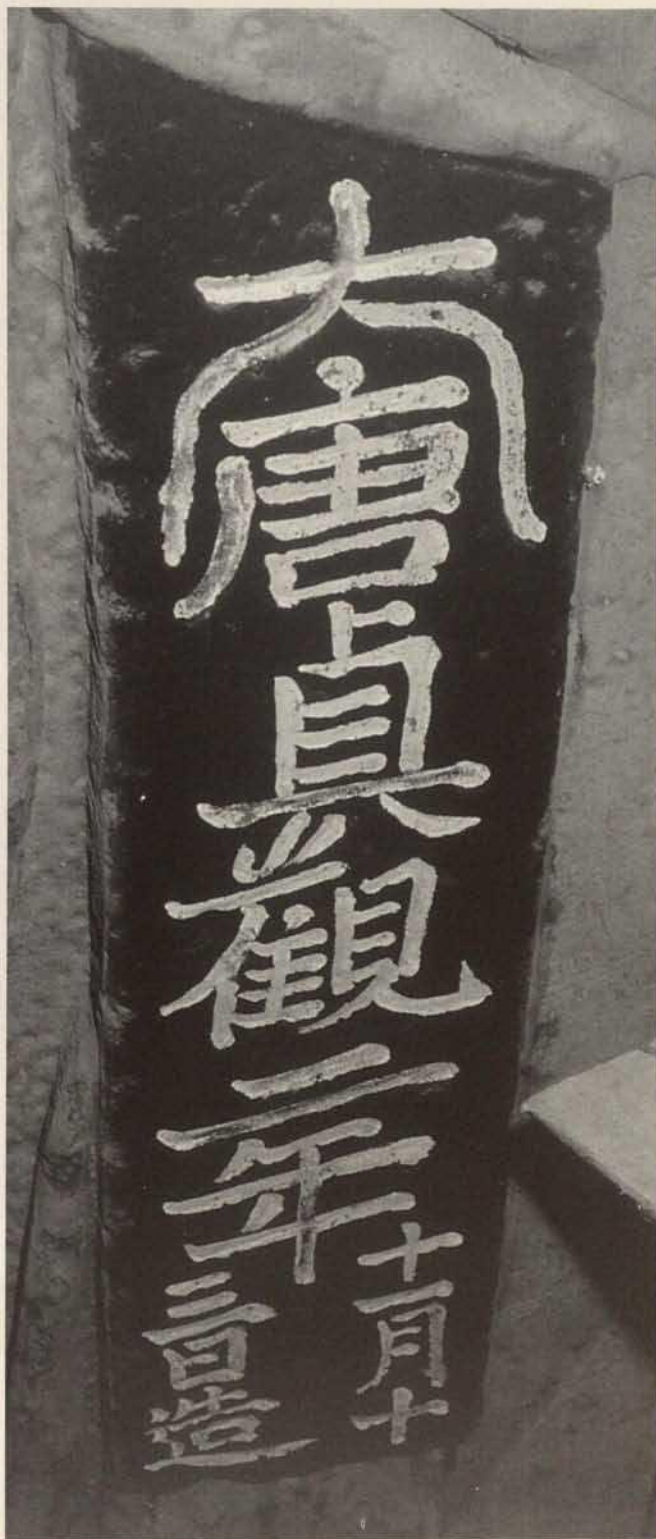 大唐貞觀二年
十一月十
三日造